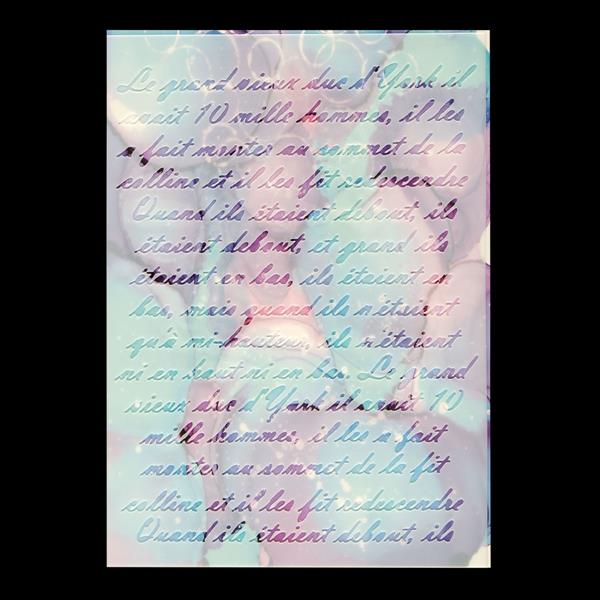 Le grand vieux duc d'York il
avait 10 mille hommes, il les
a fait monter au sommet de la
colline et il les fit redescendre
Quand ils étaient debout, ils
étaient debout, et grand ils
étaient en bas, ils étaient en
bas, mais quand ils n'étaient
qu'à mi-hauteur, ils n'étaient
ni en haut ni en bas. Le grand
vieux duc d'York il avait 10
mille hommes, il les a fait
monter au sommet de la fit
colline et il les fit redescendre
Quand ils étaient debout, ils